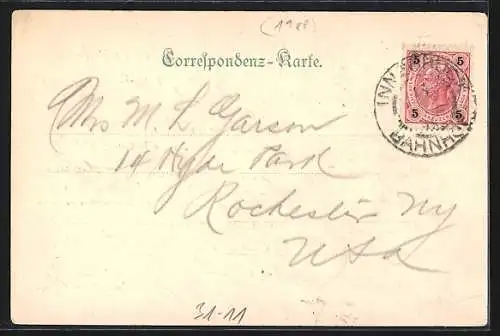 Correspondenz-Karte.
5 5
5 5
INNSBRUCK
BAHNHOF
Mrs M. L. Garson
14 Hyde Park
Rochester NY
USA
31-11